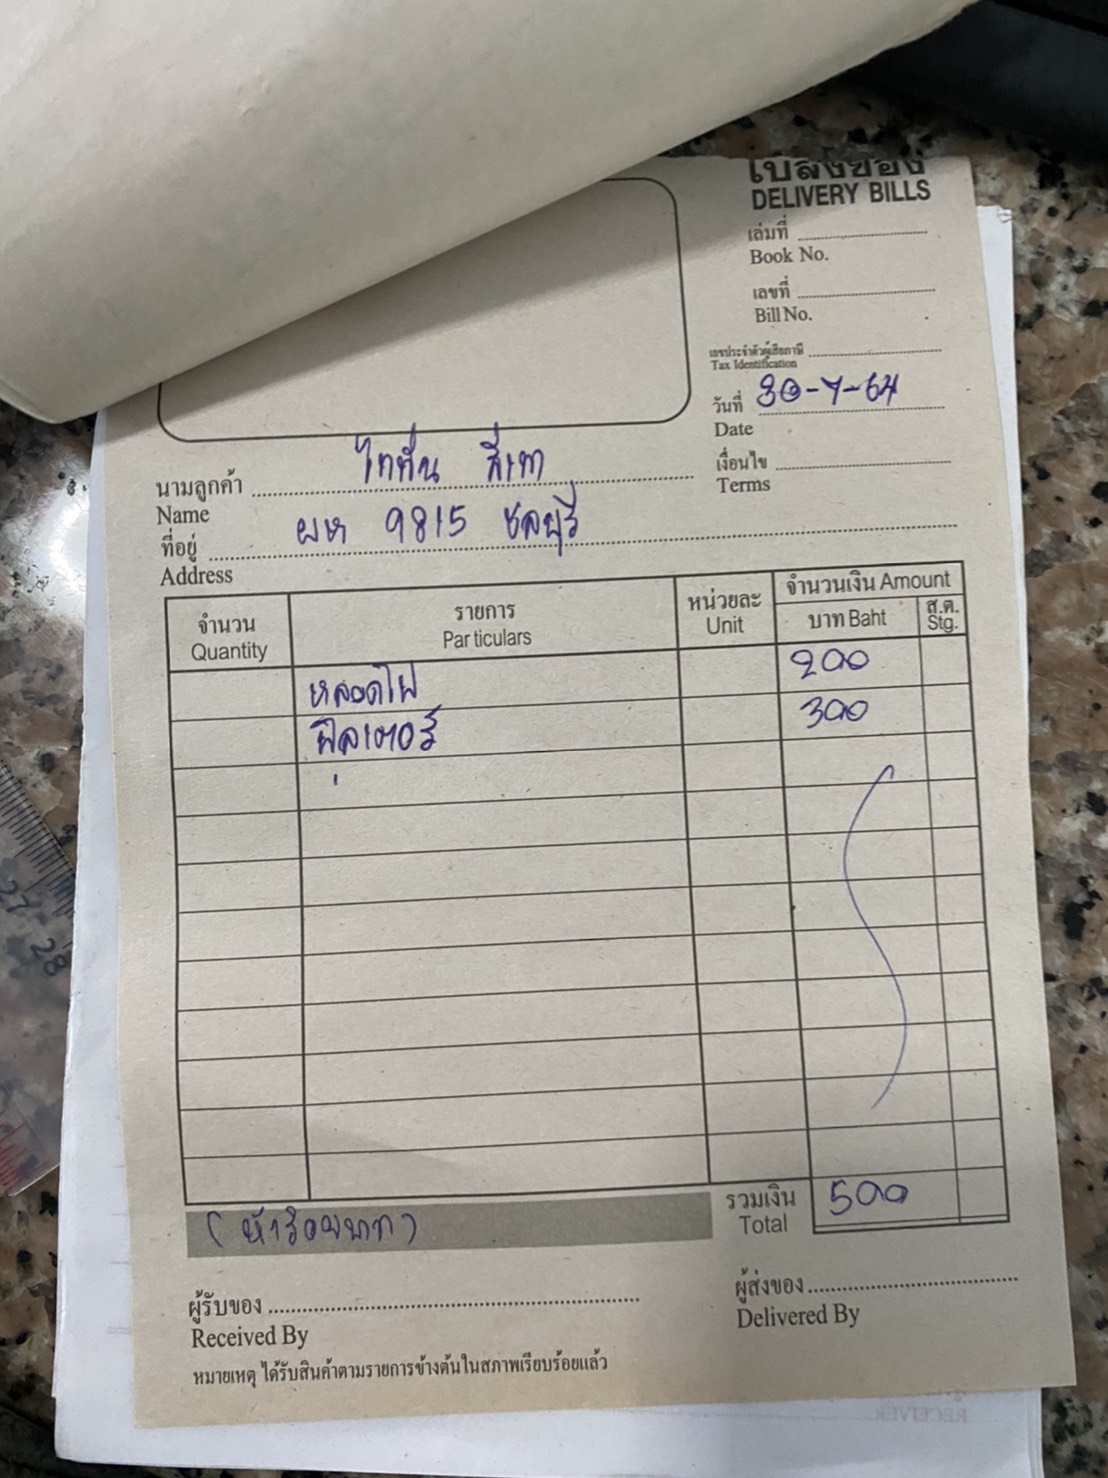 ใบส่งของ
DELIVERY BILLS
เล่มที่
Book No.
เลขที่
Bill No.
เลขประจำตัวผู้เสียภาษี
Tax Identification
วันที่ 30-7-64
Date
เงื่อนไข
Terms
นามลูกค้า ไททั่น สีเทา
Name
ที่อยู่ ผห 9815 ชลบุรี
Address
จำนวน รายการ หน่วยละ จำนวนเงิน Amount
Quantity Particulars Unit บาท Baht ส.ต. Stg.
หลอดไฟ 200
ฟิลเตอร์ 300
รวมเงิน 500
Total
(ห้าร้อยบาท)
ผู้รับของ
Received By
ผู้ส่งของ
Delivered By
หมายเหตุ ได้รับสินค้าตามรายการข้างต้นในสภาพเรียบร้อยแล้ว
RECEIVER
27
28